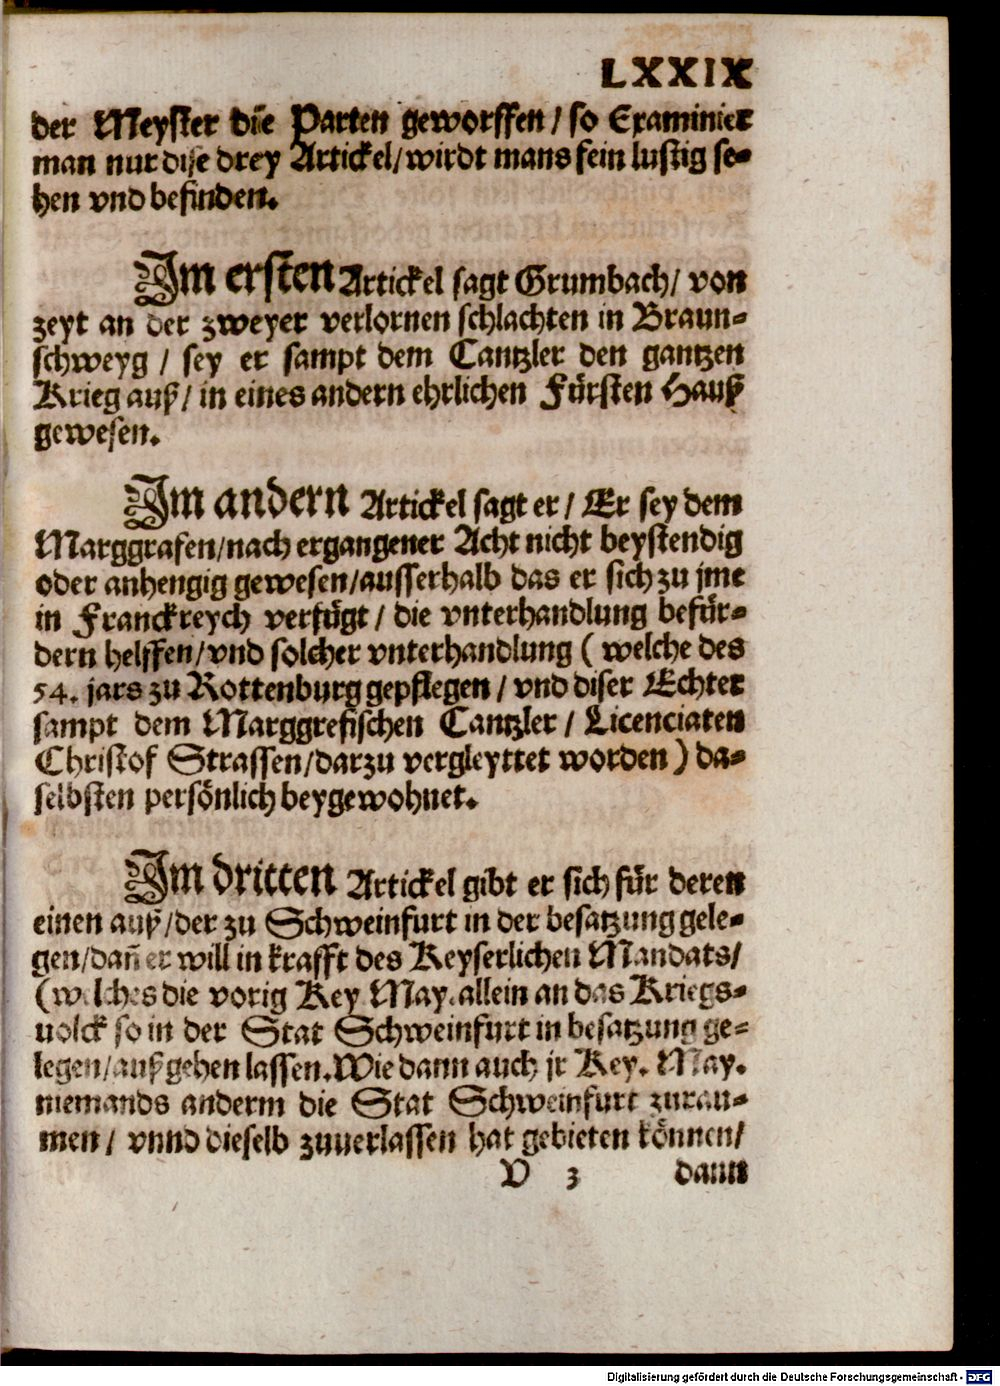 LXXIX
der Meyster die Parten geworffen / so Examinier
man nur dise drey Artickel / wirdt mans fein lustig se-
hen vnd befinden.
Im ersten Artickel sagt Grumbach / von
zeyt an der zweyer verlornen schlachten in Braun-
schweyg / sey er sampt dem Cantzler den gantzen
Krieg auß / in eines andern ehrlichen Fürsten Hauß
gewesen.
Im andern Artickel sagt er / Er sey dem
Marggrafen / nach ergangener Acht nicht beystendig
oder anhengig gewesen / ausserhalb das er sich zu jme
in Franckreych verfügt / die vnterhandlung befür-
dern helffen / vnd solcher vnterhandlung ( welche des
54. jars zu Rottenburg gepflegen / vnd diser Echter
sampt dem Marggrefischen Cantzler / Licenciaten
Christof Strassen / darzu vergleyttet worden ) da-
selbsten persönlich beygewohnet.
Im dritten Artickel gibt er sich für deren
einen auß / der zu Schweinfurt in der besatzung gele-
gen / dañ er will in krafft des Keyserlichen Mandats /
(welches die vorig Key. May. allein an das Kriegs-
uolck so in der Stat Schweinfurt in besatzung ge-
legen / außgehen lassen. Wie dann auch jr Key. May.
niemands anderm die Stat Schweinfurt zurau-
men / vnnd dieselb zuuerlassen hat gebieten können /
V 3 dann
Digitalisierung gefördert durch die Deutsche Forschungsgemeinschaft - DFG